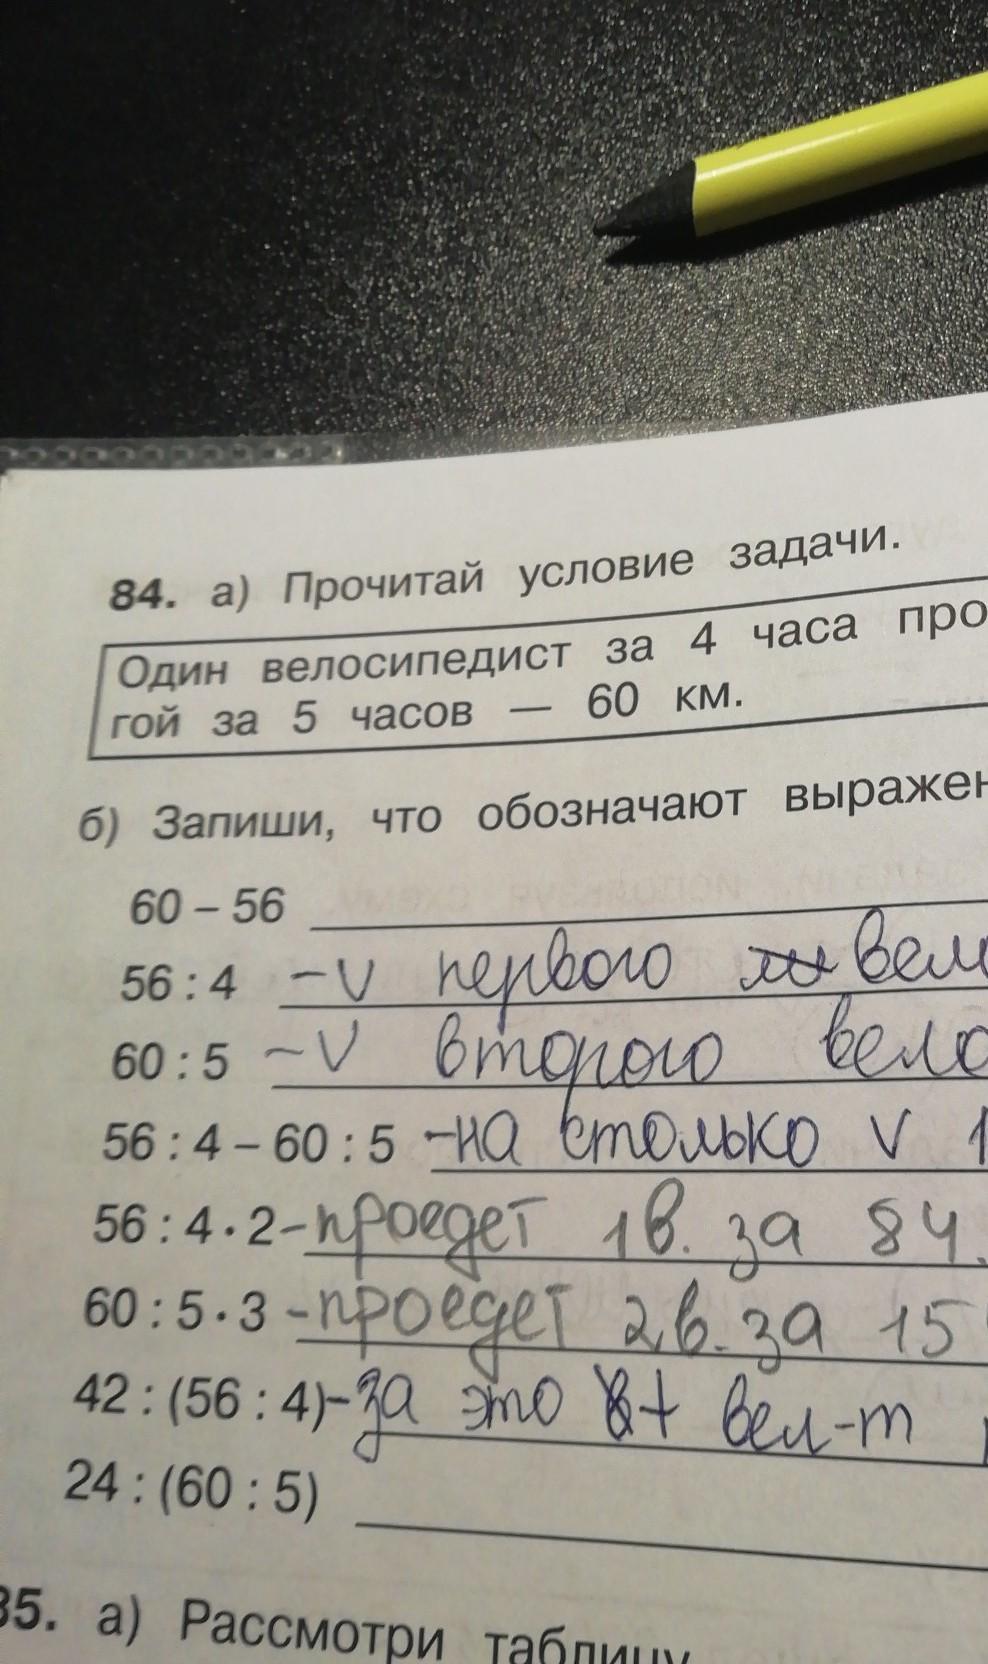 84. а) Прочитай условие задачи.
Один велосипедист за 4 часа про
гой за 5 часов — 60 км.
б) Запиши, что обозначают выражен
60 – 56
56 : 4 – v первого вел
60 : 5 – v второго вело
56 : 4 – 60 : 5 – на столько v 1
56 : 4 · 2 – проедет 1 в. за 8ч.
60 : 5 · 3 – проедет 2 в. за 15
42 : (56 : 4) – за это t вел-т
24 : (60 : 5)
85. а) Рассмотри таблицу